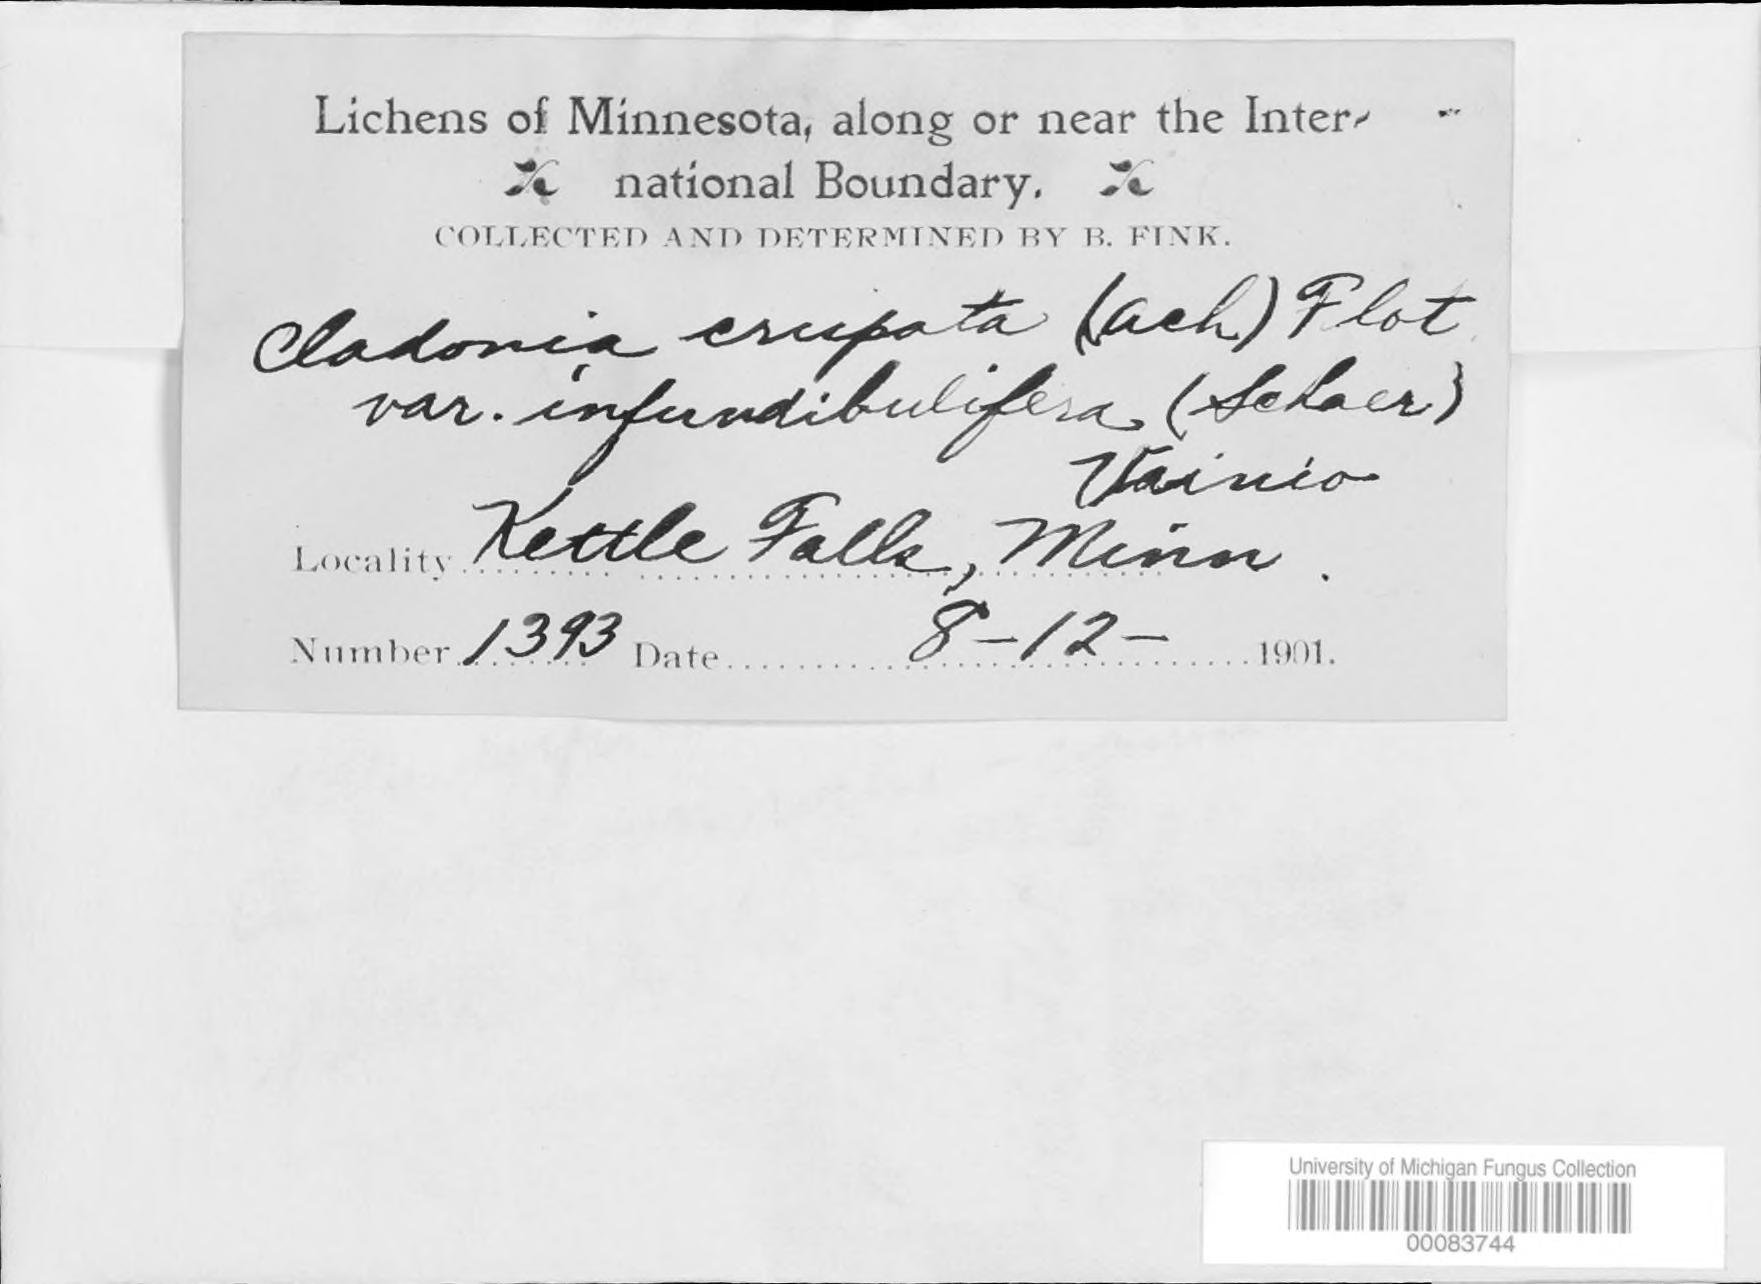 Lichens of Minnesota, along or near the Inter-
national Boundary.
COLLECTED AND DETERMINED BY B. FINK.
Cladonia crispata (Ach) Flot
var. infundibulifera (Schaer)
Vainio
Locality Kettle Falls, Minn.
Number 1393 Date 8-12- 1901.
University of Michigan Fungus Collection
00083744